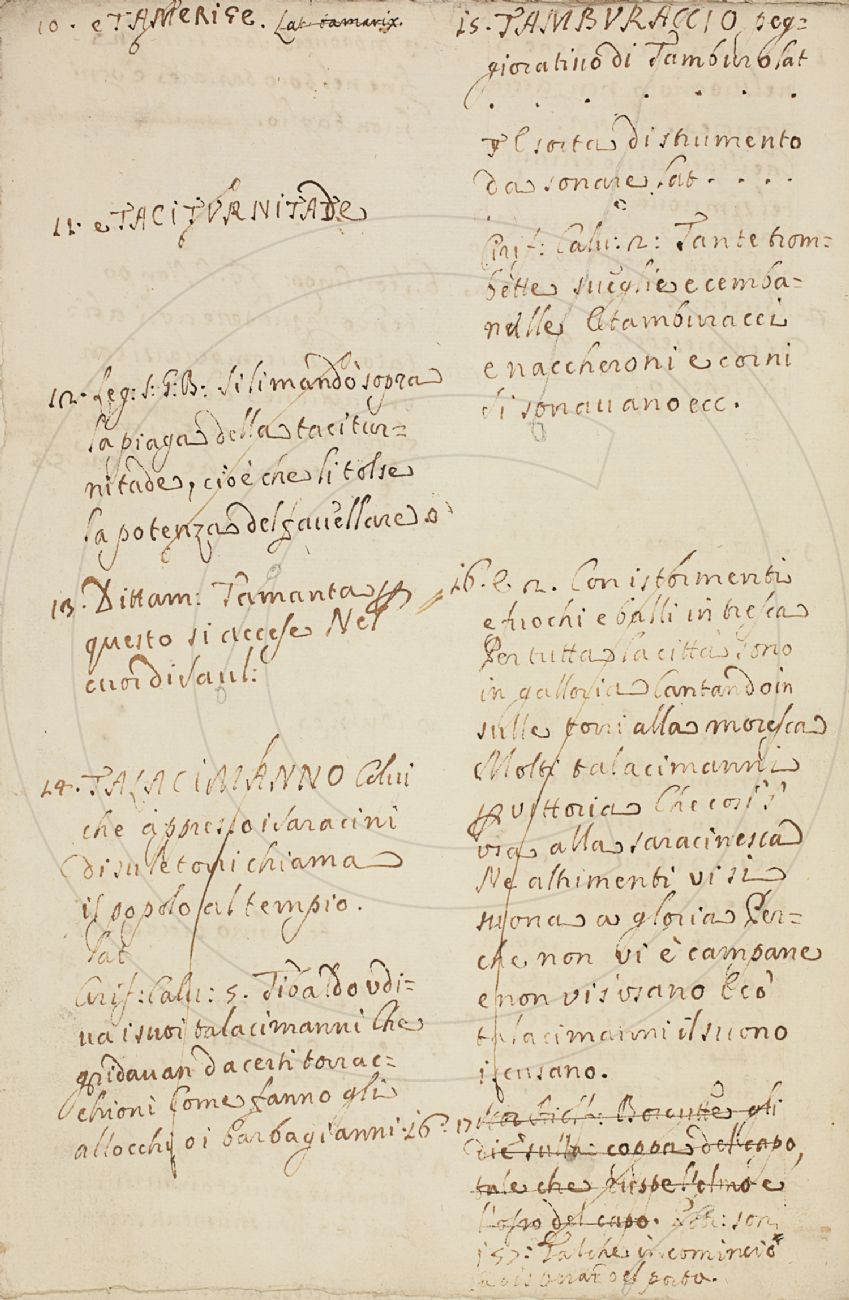 10. e TAMERIGE. Lat. tamarix.
11. e TACITVRNITADE
12. Leg: S: G: B: Si li mandò sopra
la piaga della tacitur=
nitade, cioè che li tolse
la potenza del favellare
13. Dittam: Tamanta
questo si accese Nel
cuor di Saul:
14. TALACIMANNO Colui
che appresso i Saracini
di su le torri chiama
il popolo al tempio.
Lat
Cirif: Calu: 5. Tibaldo vdi=
ua i suoi talacimanni Che
gridauan da certi torrac=
chioni Come fanno gli
allocchi o i barbagianni. 16.
15. TAMBVRACCIO peg=
giorativo di Tamburo Lat
. . . . . .
E sorta di strumento
da sonare Lat. . . .
.
Cirif: Calu: 2: Tante trom=
bette sueglie e cemba=
nelle E tamburacci
e naccheroni e corni
Si sonauano ecc.
16. E 2. Con istormenti
e fuochi e balli in tresca
Per tutta la città sono
in galloria Cantando in
sulle torri alla moresca
Molti talacimanni
vittoria Che così s'
vsa alla saracinesca
Ne altrimenti vi si
suona a gloria Per=
che non vi è campane
e non vi s'vsano E cò
talacimanni il suono
iscusano.
17. gli
diè sulla coppa del capo,
tale che e
l'osso del capo. son.
157: Talche incominciò
porto.